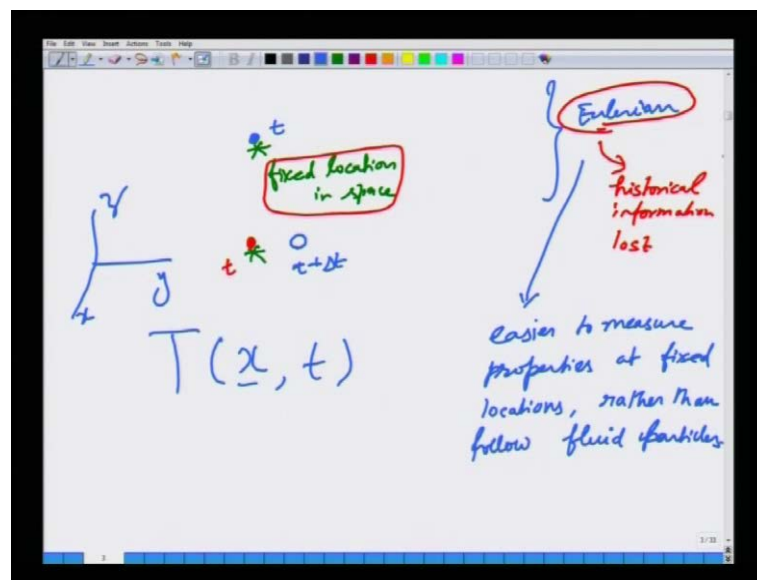 File Edit View Insert Actions Tools Help
B I
t
fixed location
in space
t
t+Δt
z
y
x
T(x, t)
Eulerian
historical
information
lost
easier to measure
properties at fixed
locations, rather than
follow fluid particles
3